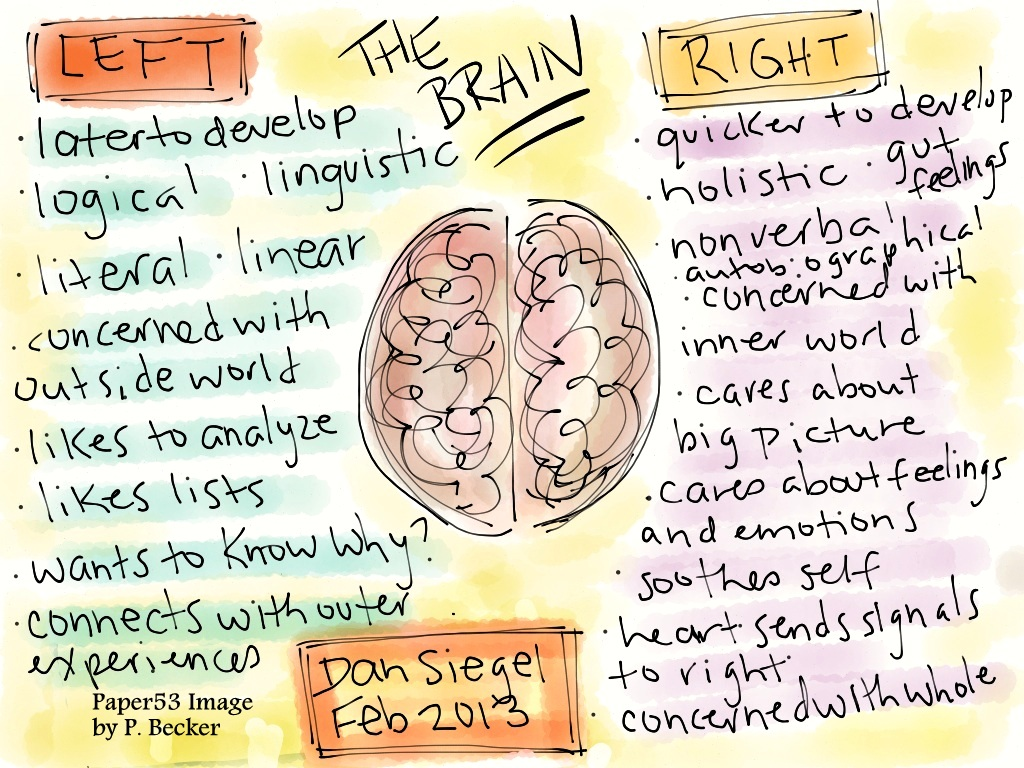 LEFT
THE
BRAIN
RIGHT
· later to develop
· logical · linguistic
· literal · linear
· concerned with
outside world
· likes to analyze
· likes lists
· wants to know why?
· connects with outer
experiences
· quicker to develop
· holistic · gut
feelings
· nonverbal
· autobiographical
· concerned with
inner world
· cares about
big picture
· cares about feelings
and emotions
· soothes self
· heart sends signals
to right
· concerned with whole
Dan Siegel
Feb 2013
Paper53 Image
by P. Becker